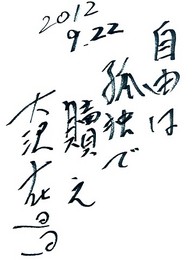 2012
9.22
自由は
孤独で
贖え
大沢在昌